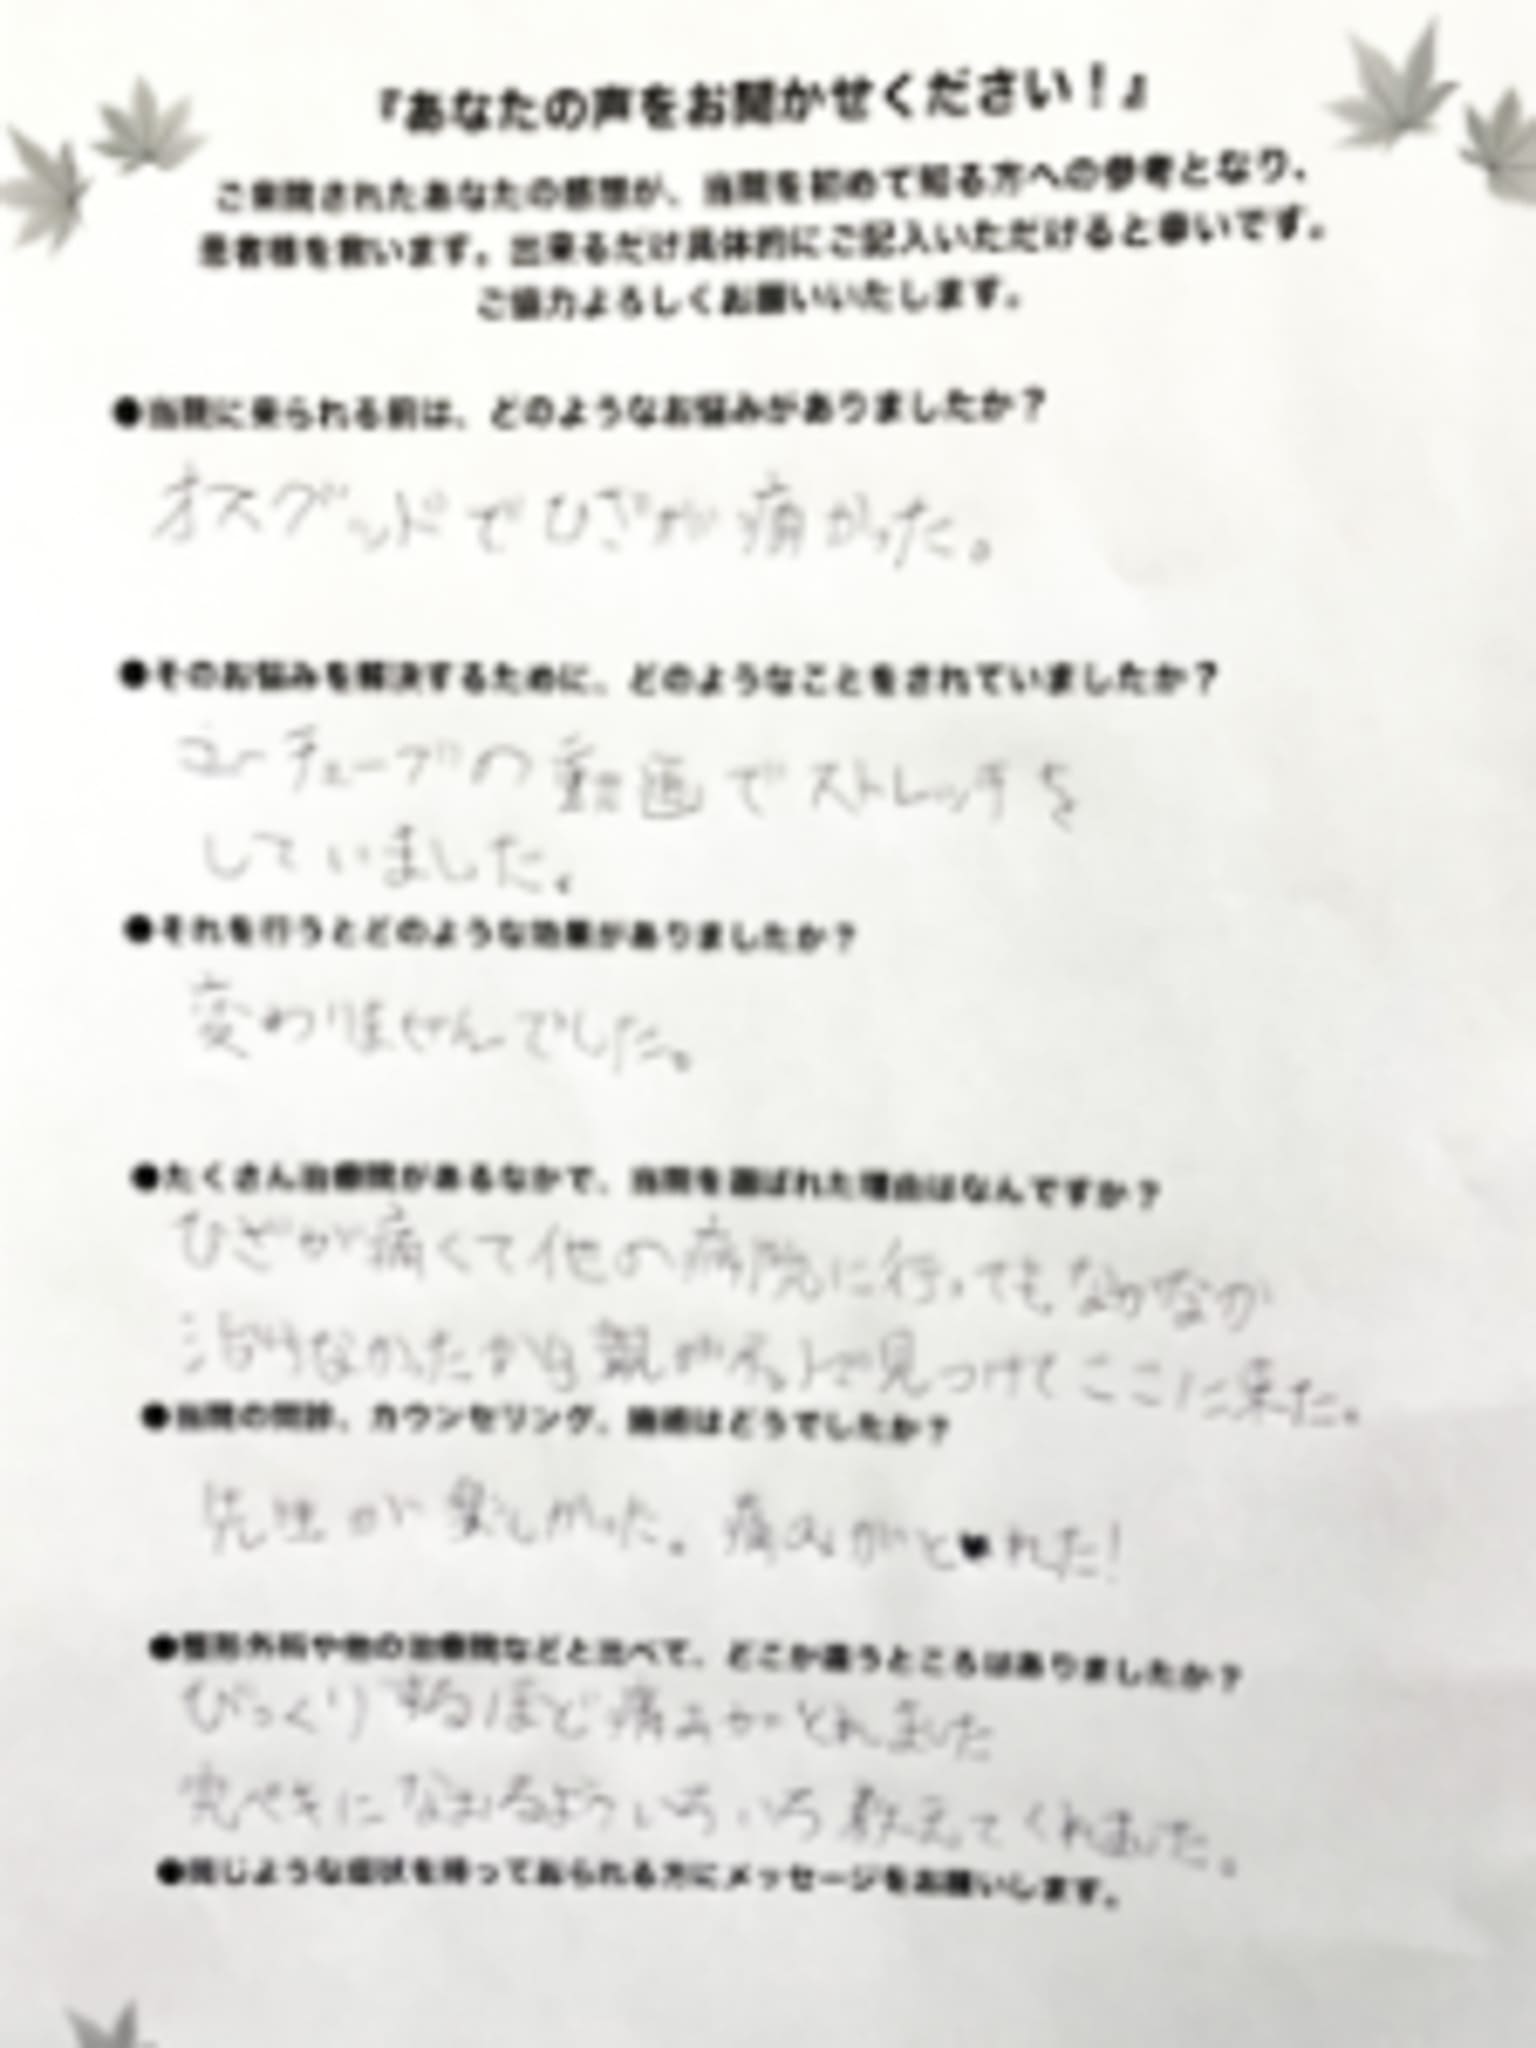 『あなたの声をお聞かせください！』
ご来院されたあなたの感想が、当院を初めて知る方への参考となり、
患者様を救います。出来るだけ具体的にご記入いただけると幸いです。
ご協力よろしくお願いいたします。
●当院に来られる前は、どのようなお悩みがありましたか？
オスグッドでひざが痛かった。
●そのお悩みを解決するために、どのようなことをされていましたか？
ユーチューブの動画でストレッチを
していました。
●それを行うとどのような効果がありましたか？
変わりませんでした。
●たくさん治療院があるなかで、当院を選ばれた理由はなんですか？
ひざが痛くて他の病院に行ってもなかなか
治らなかったから親がネットで見つけてここに来た。
●当院の問診、カウンセリング、施術はどうでしたか？
先生が楽しかった。痛みがとれた！
●整形外科や他の治療院などと比べて、どこか違うところはありましたか？
びっくりするほど痛みがとれました
完ペキになおるよういろいろ教えてくれました。
●同じような症状を持っておられる方にメッセージをお願いします。